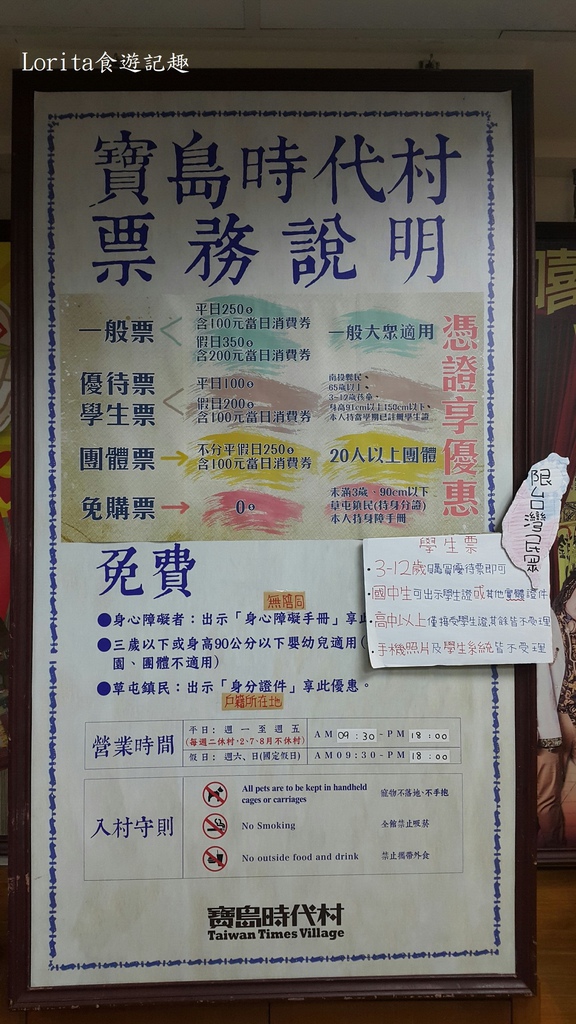 Lorita食遊記趣
寶島時代村
票務說明
一般票
平日250
含100元當日消費券
假日350
含200元當日消費券
一般大眾適用
憑證享優惠
優待票
學生票
平日100
假日200
含100元當日消費券
南投縣民、
65歲以上、
3-12歲孩童、
身高91cm以上150cm以下、
本人持當學期已註冊學生證
團體票
不分平假日250
含100元當日消費券
20人以上團體
免購票
0
未滿3歲、90cm以下
草屯鎮民(持身分證)
本人持身障手冊
限台灣公民
學生票
•3-12歲購買優待票即可
•國中生可出示學生證或其他實體證件
•高中以上僅接受學生證,其餘皆不受理
•手機照片及學生系統皆不受理
免費
無陪同
●身心障礙者：出示「身心障礙手冊」享
●三歲以下或身高90公分以下嬰幼兒適用(
園、團體不適用)
●草屯鎮民：出示「身分證件」享此優惠。
戶籍所在地
營業時間
平日：週一至週五
(每週二休村,2、7、8月不休村)
AM 09:30 - PM 18:00
假日：週六、日(國定假日)
AM 09:30 - PM 18:00
入村守則
All pets are to be kept in handheld
cages or carriages
寵物不落地、不手抱
No Smoking
全館禁止吸菸
No outside food and drink
禁止攜帶外食
寶島時代村
Taiwan Times Village